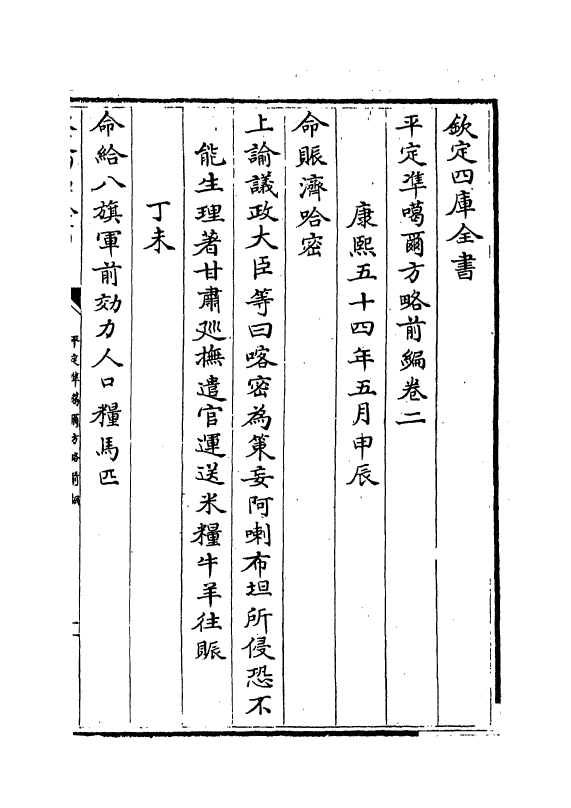 欽定四庫全書
平定準噶爾方略前編卷二
康熙五十四年五月甲辰
命賑濟哈密
上諭議政大臣等曰喀密為策妄阿喇布坦所侵恐不
能生理著甘肅廵撫遣官運送米糧牛羊往賑
丁未
命給八旗軍前効力人口糧馬匹
平定準噶爾方略前編